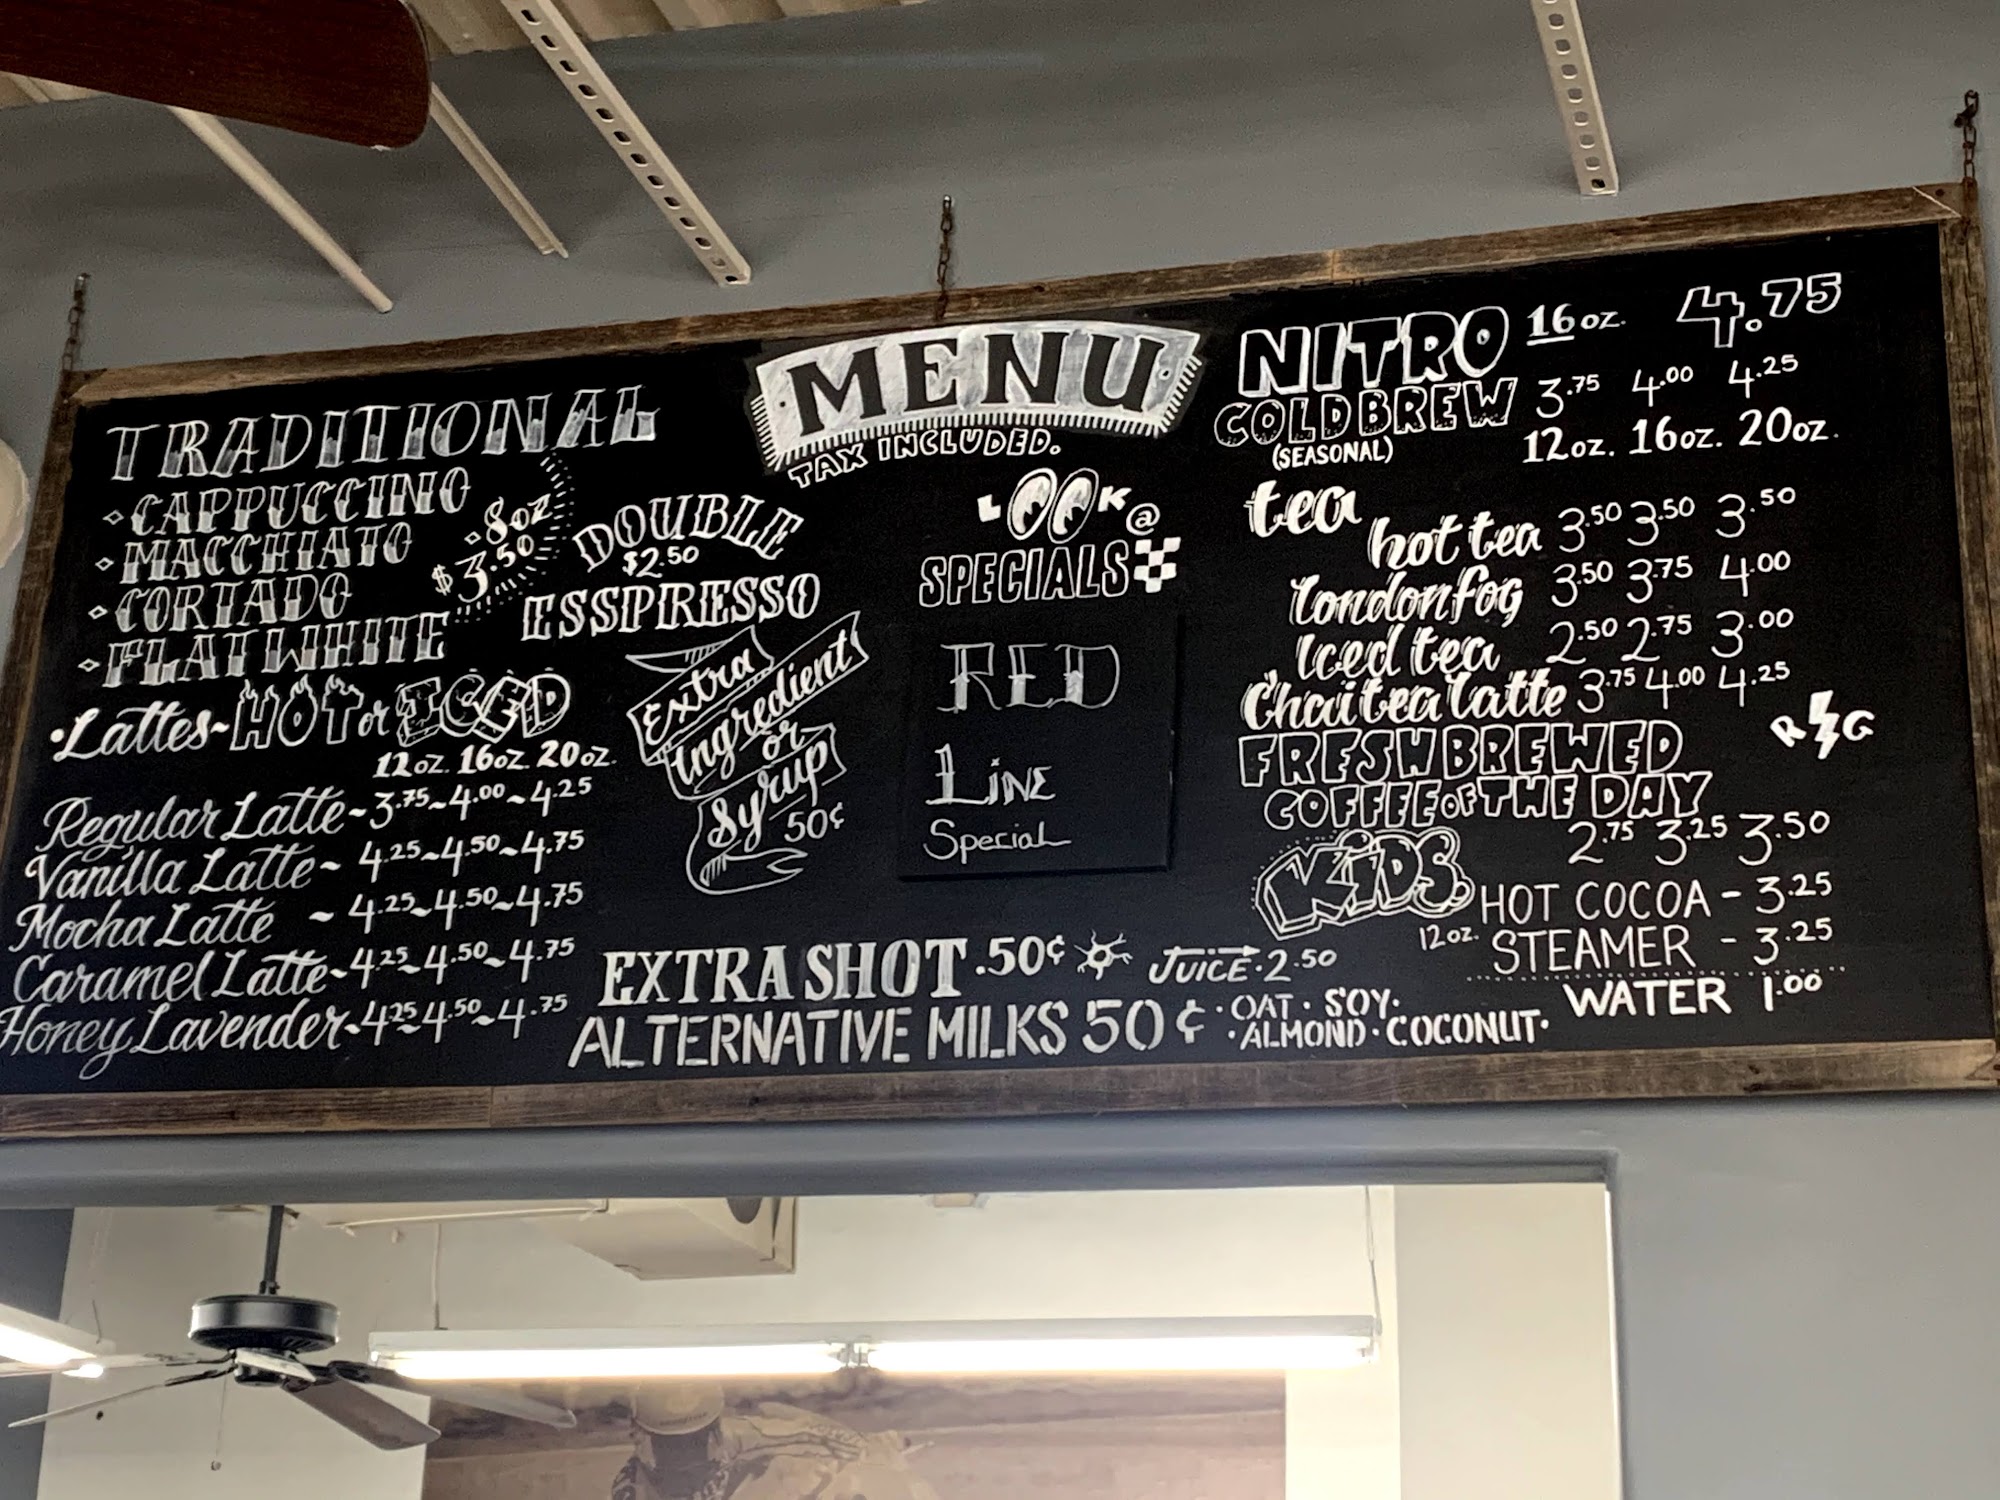 MENU
TAX INCLUDED.
TRADITIONAL
CAPPUCCINO
MACCHIATO
CORTADO
FLAT WHITE
8oz
$3.50
DOUBLE
$2.50
ESSPRESSO
Lattes~HOT or ICED
12oz. 16oz. 20oz.
Regular Latte~3.75~4.00~4.25
Vanilla Latte~4.25~4.50~4.75
Mocha Latte ~4.25~4.50~4.75
Caramel Latte~4.25~4.50~4.75
Honey Lavender~4.25~4.50~4.75
Extra
Ingredient
or
Syrup
50¢
LOOK@
SPECIALS
RED
LiNE
Special
EXTRA SHOT .50¢
JUICE·2.50
ALTERNATIVE MILKS 50¢
·OAT·SOY·
·ALMOND·COCONUT·
NITRO 16oz. 4.75
COLD BREW 3.75 4.00 4.25
(SEASONAL) 12oz. 16oz. 20oz.
tea
hot tea 3.50 3.50 3.50
london fog 3.50 3.75 4.00
Iced tea 2.50 2.75 3.00
Chai tea latte 3.75 4.00 4.25
R G
FRESH BREWED
COFFEE OF THE DAY
2.75 3.25 3.50
KiDS.
12oz.
HOT COCOA - 3.25
STEAMER - 3.25
WATER 1.00